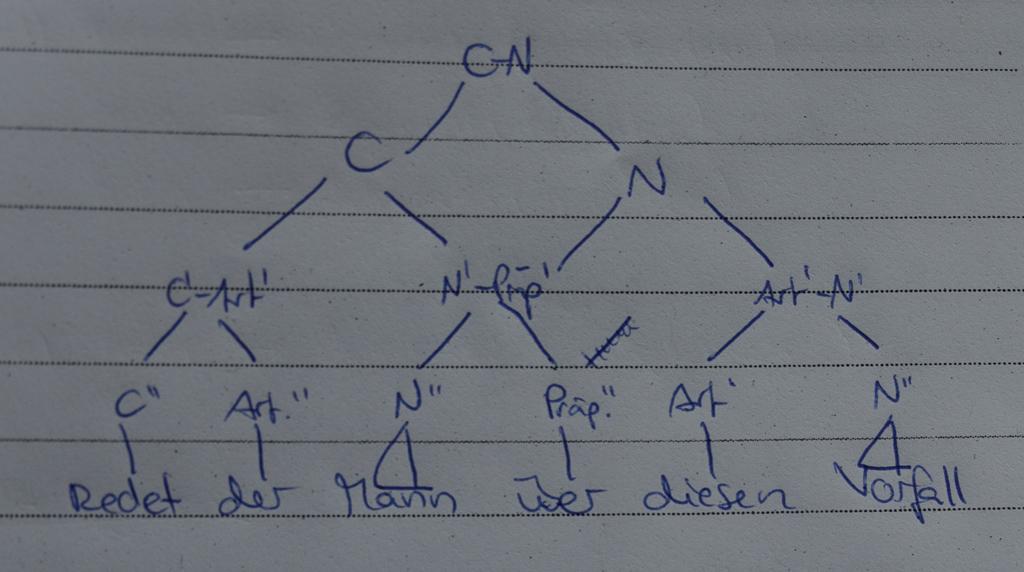 C-N
C N
C'-Art' N'-Präp' Art'-N'
C" Art." N" Präp." Art' N"
Redet der Mann über diesen Vorfall